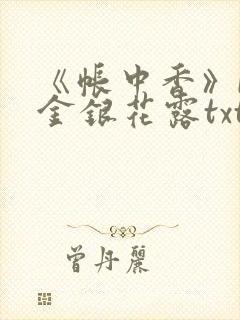 《帳中香》
金銀花露txt
曾丹麗